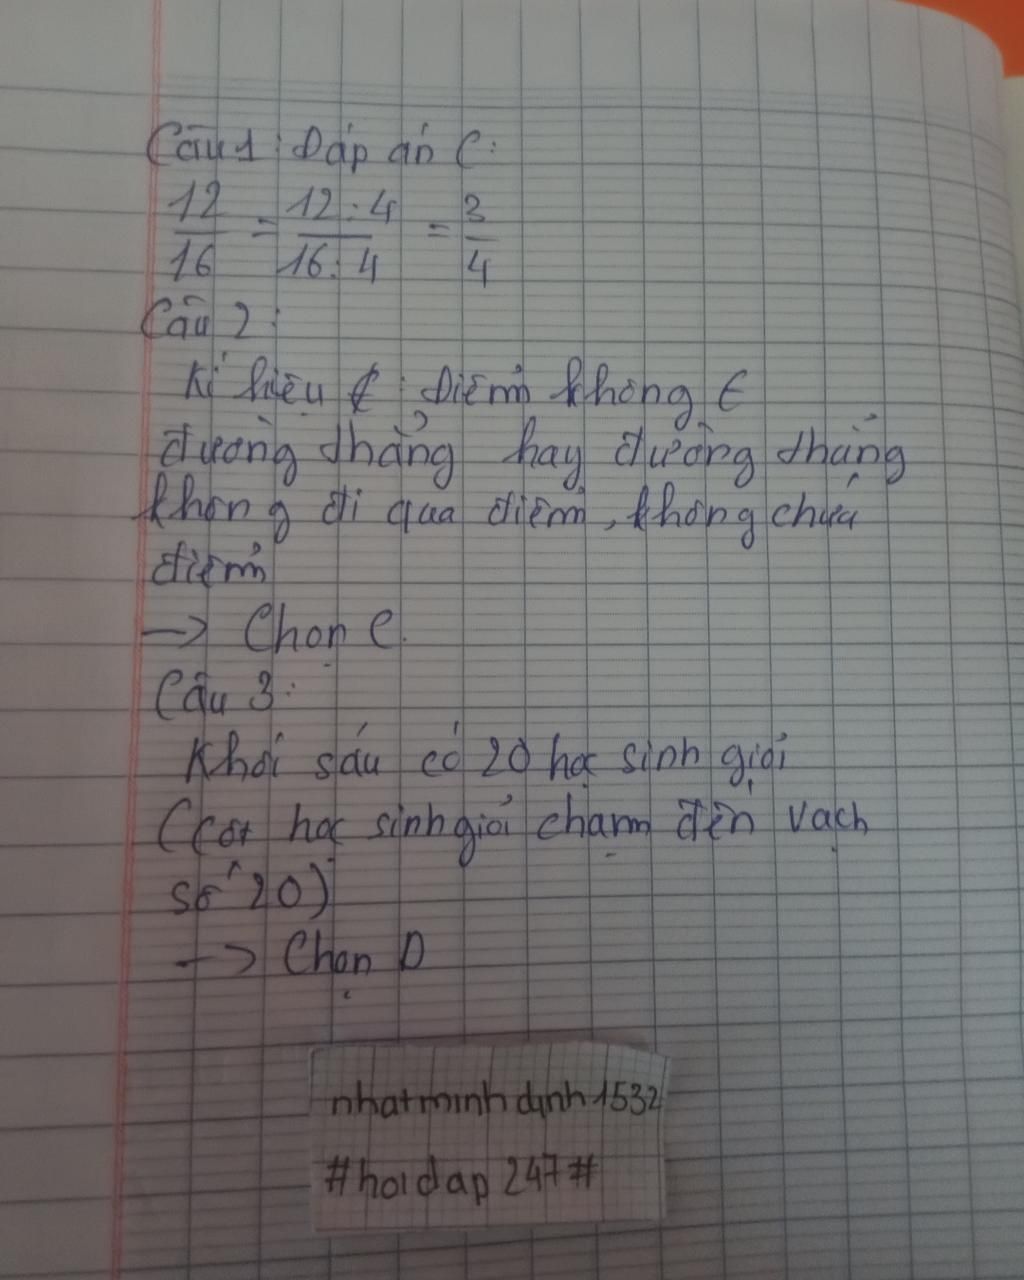 Câu 1: Đáp án C:
12/16 = 12:4/16:4 = 3/4
Câu 2:
Kí hiệu ∉: Điểm không ∈
đường thẳng hay đường thẳng
không đi qua điểm, không chứa
điểm
-> Chọn C.
Câu 3:
Khối sáu có 20 học sinh giỏi
(Cột học sinh giỏi chạm đến vạch
số 20)
-> Chọn D
nhatminhdinh1532
#hoidap247#